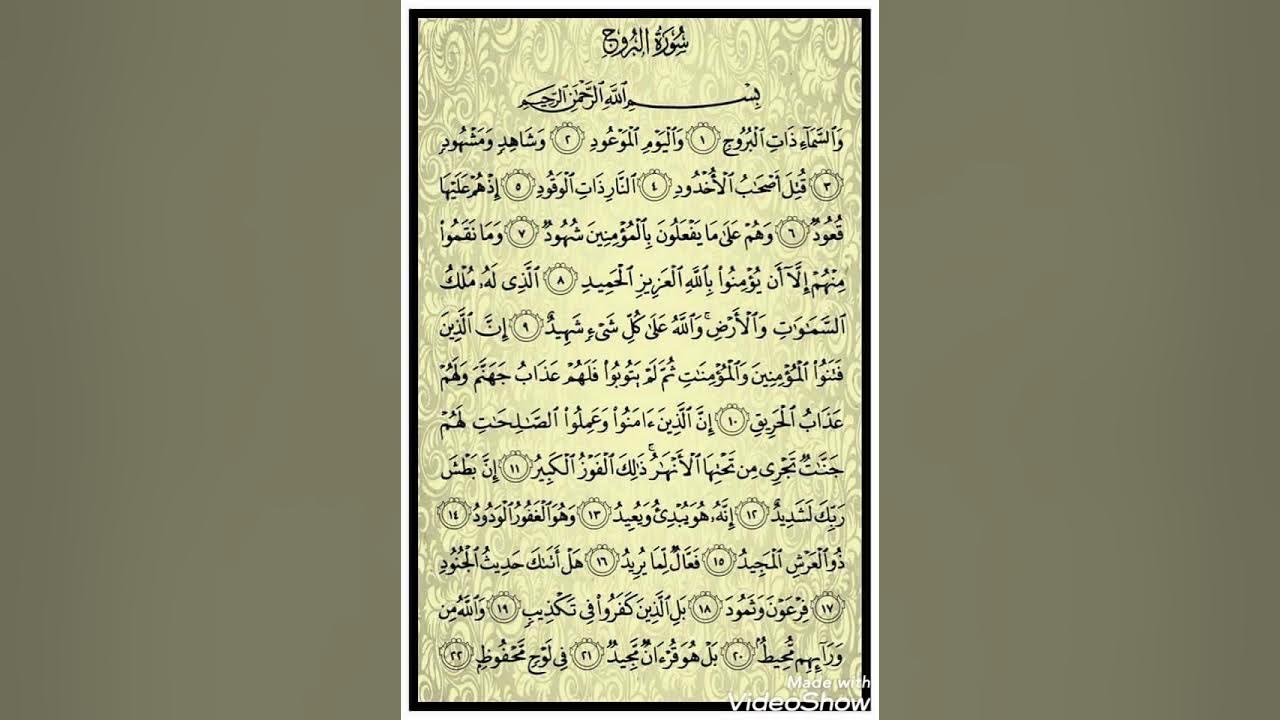 سُورَةُ البُرُوجِ
بِسْمِ ٱللَّهِ ٱلرَّحْمَٰنِ ٱلرَّحِيمِ
وَٱلسَّمَآءِ ذَاتِ ٱلْبُرُوجِ ١ وَٱلْيَوْمِ ٱلْمَوْعُودِ ٢ وَشَاهِدٍ وَمَشْهُودٍ
٣ قُتِلَ أَصْحَٰبُ ٱلْأُخْدُودِ ٤ ٱلنَّارِ ذَاتِ ٱلْوَقُودِ ٥ إِذْ هُمْ عَلَيْهَا
قُعُودٌ ٦ وَهُمْ عَلَىٰ مَا يَفْعَلُونَ بِٱلْمُؤْمِنِينَ شُهُودٌ ٧ وَمَا نَقَمُوا۟
مِنْهُمْ إِلَّآ أَن يُؤْمِنُوا۟ بِٱللَّهِ ٱلْعَزِيزِ ٱلْحَمِيدِ ٨ ٱلَّذِى لَهُۥ مُلْكُ
ٱلسَّمَٰوَٰتِ وَٱلْأَرْضِ ۚ وَٱللَّهُ عَلَىٰ كُلِّ شَىْءٍ شَهِيدٌ ٩ إِنَّ ٱلَّذِينَ
فَتَنُوا۟ ٱلْمُؤْمِنِينَ وَٱلْمُؤْمِنَٰتِ ثُمَّ لَمْ يَتُوبُوا۟ فَلَهُمْ عَذَابُ جَهَنَّمَ وَلَهُمْ
عَذَابُ ٱلْحَرِيقِ ١٠ إِنَّ ٱلَّذِينَ ءَامَنُوا۟ وَعَمِلُوا۟ ٱلصَّٰلِحَٰتِ لَهُمْ
جَنَّٰتٌ تَجْرِى مِن تَحْتِهَا ٱلْأَنْهَٰرُ ۚ ذَٰلِكَ ٱلْفَوْزُ ٱلْكَبِيرُ ١١ إِنَّ بَطْشَ
رَبِّكَ لَشَدِيدٌ ١٢ إِنَّهُۥ هُوَ يُبْدِئُ وَيُعِيدُ ١٣ وَهُوَ ٱلْغَفُورُ ٱلْوَدُودُ ١٤
ذُو ٱلْعَرْشِ ٱلْمَجِيدُ ١٥ فَعَّالٌ لِّمَا يُرِيدُ ١٦ هَلْ أَتَىٰكَ حَدِيثُ ٱلْجُنُودِ
١٧ فِرْعَوْنَ وَثَمُودَ ١٨ بَلِ ٱلَّذِينَ كَفَرُوا۟ فِى تَكْذِيبٍ ١٩ وَٱللَّهُ مِن
وَرَآئِهِم مُّحِيطٌۢ ٢٠ بَلْ هُوَ قُرْءَانٌ مَّجِيدٌ ٢١ فِى لَوْحٍ مَّحْفُوظٍۭ ٢٢
Made with
VideoShow